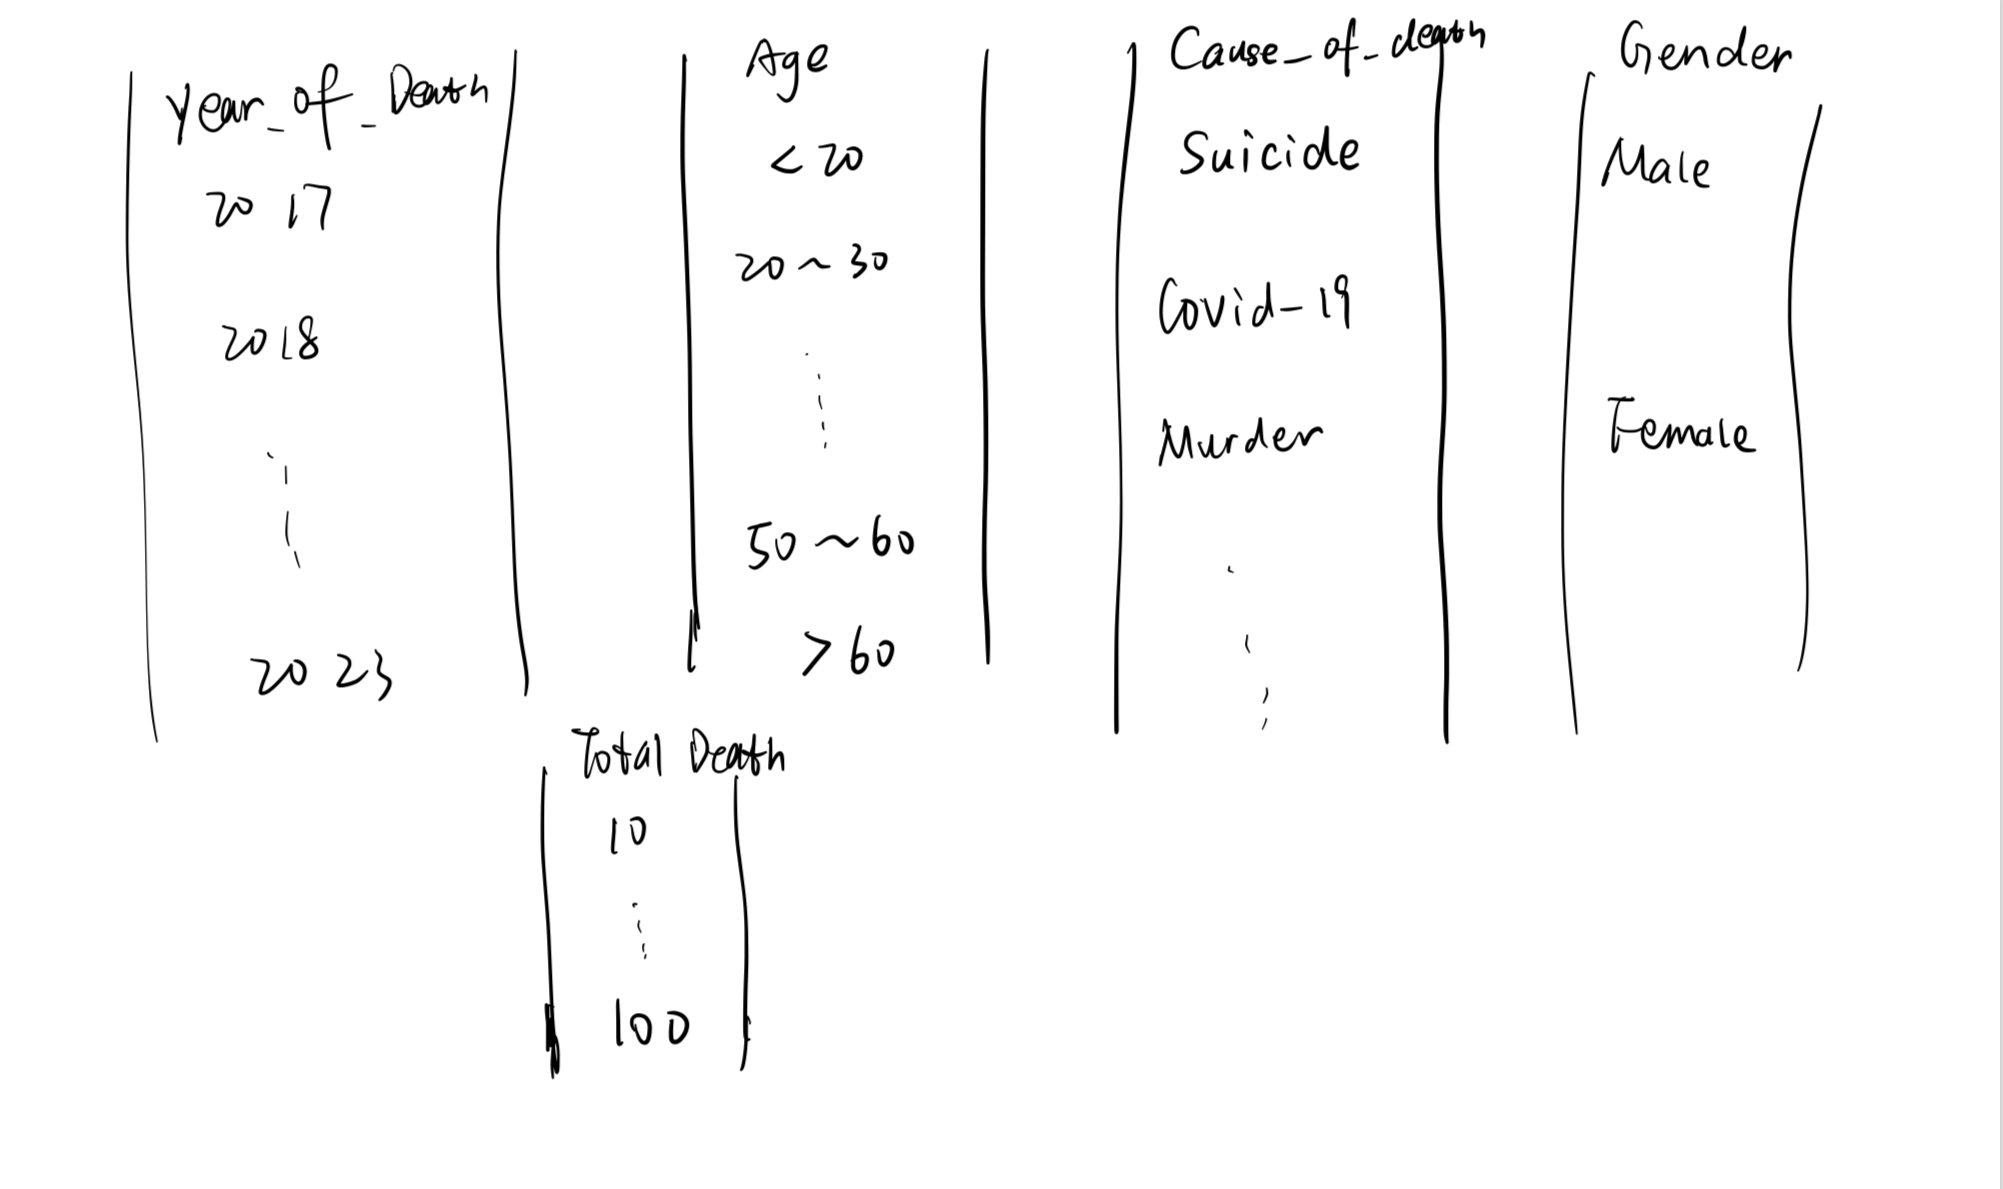 Year_of_Death
2017
2018
2023
Age
<20
20~30
50~60
>60
Cause_of_death
Suicide
Covid-19
Murder
Gender
Male
Female
Total Death
10
100